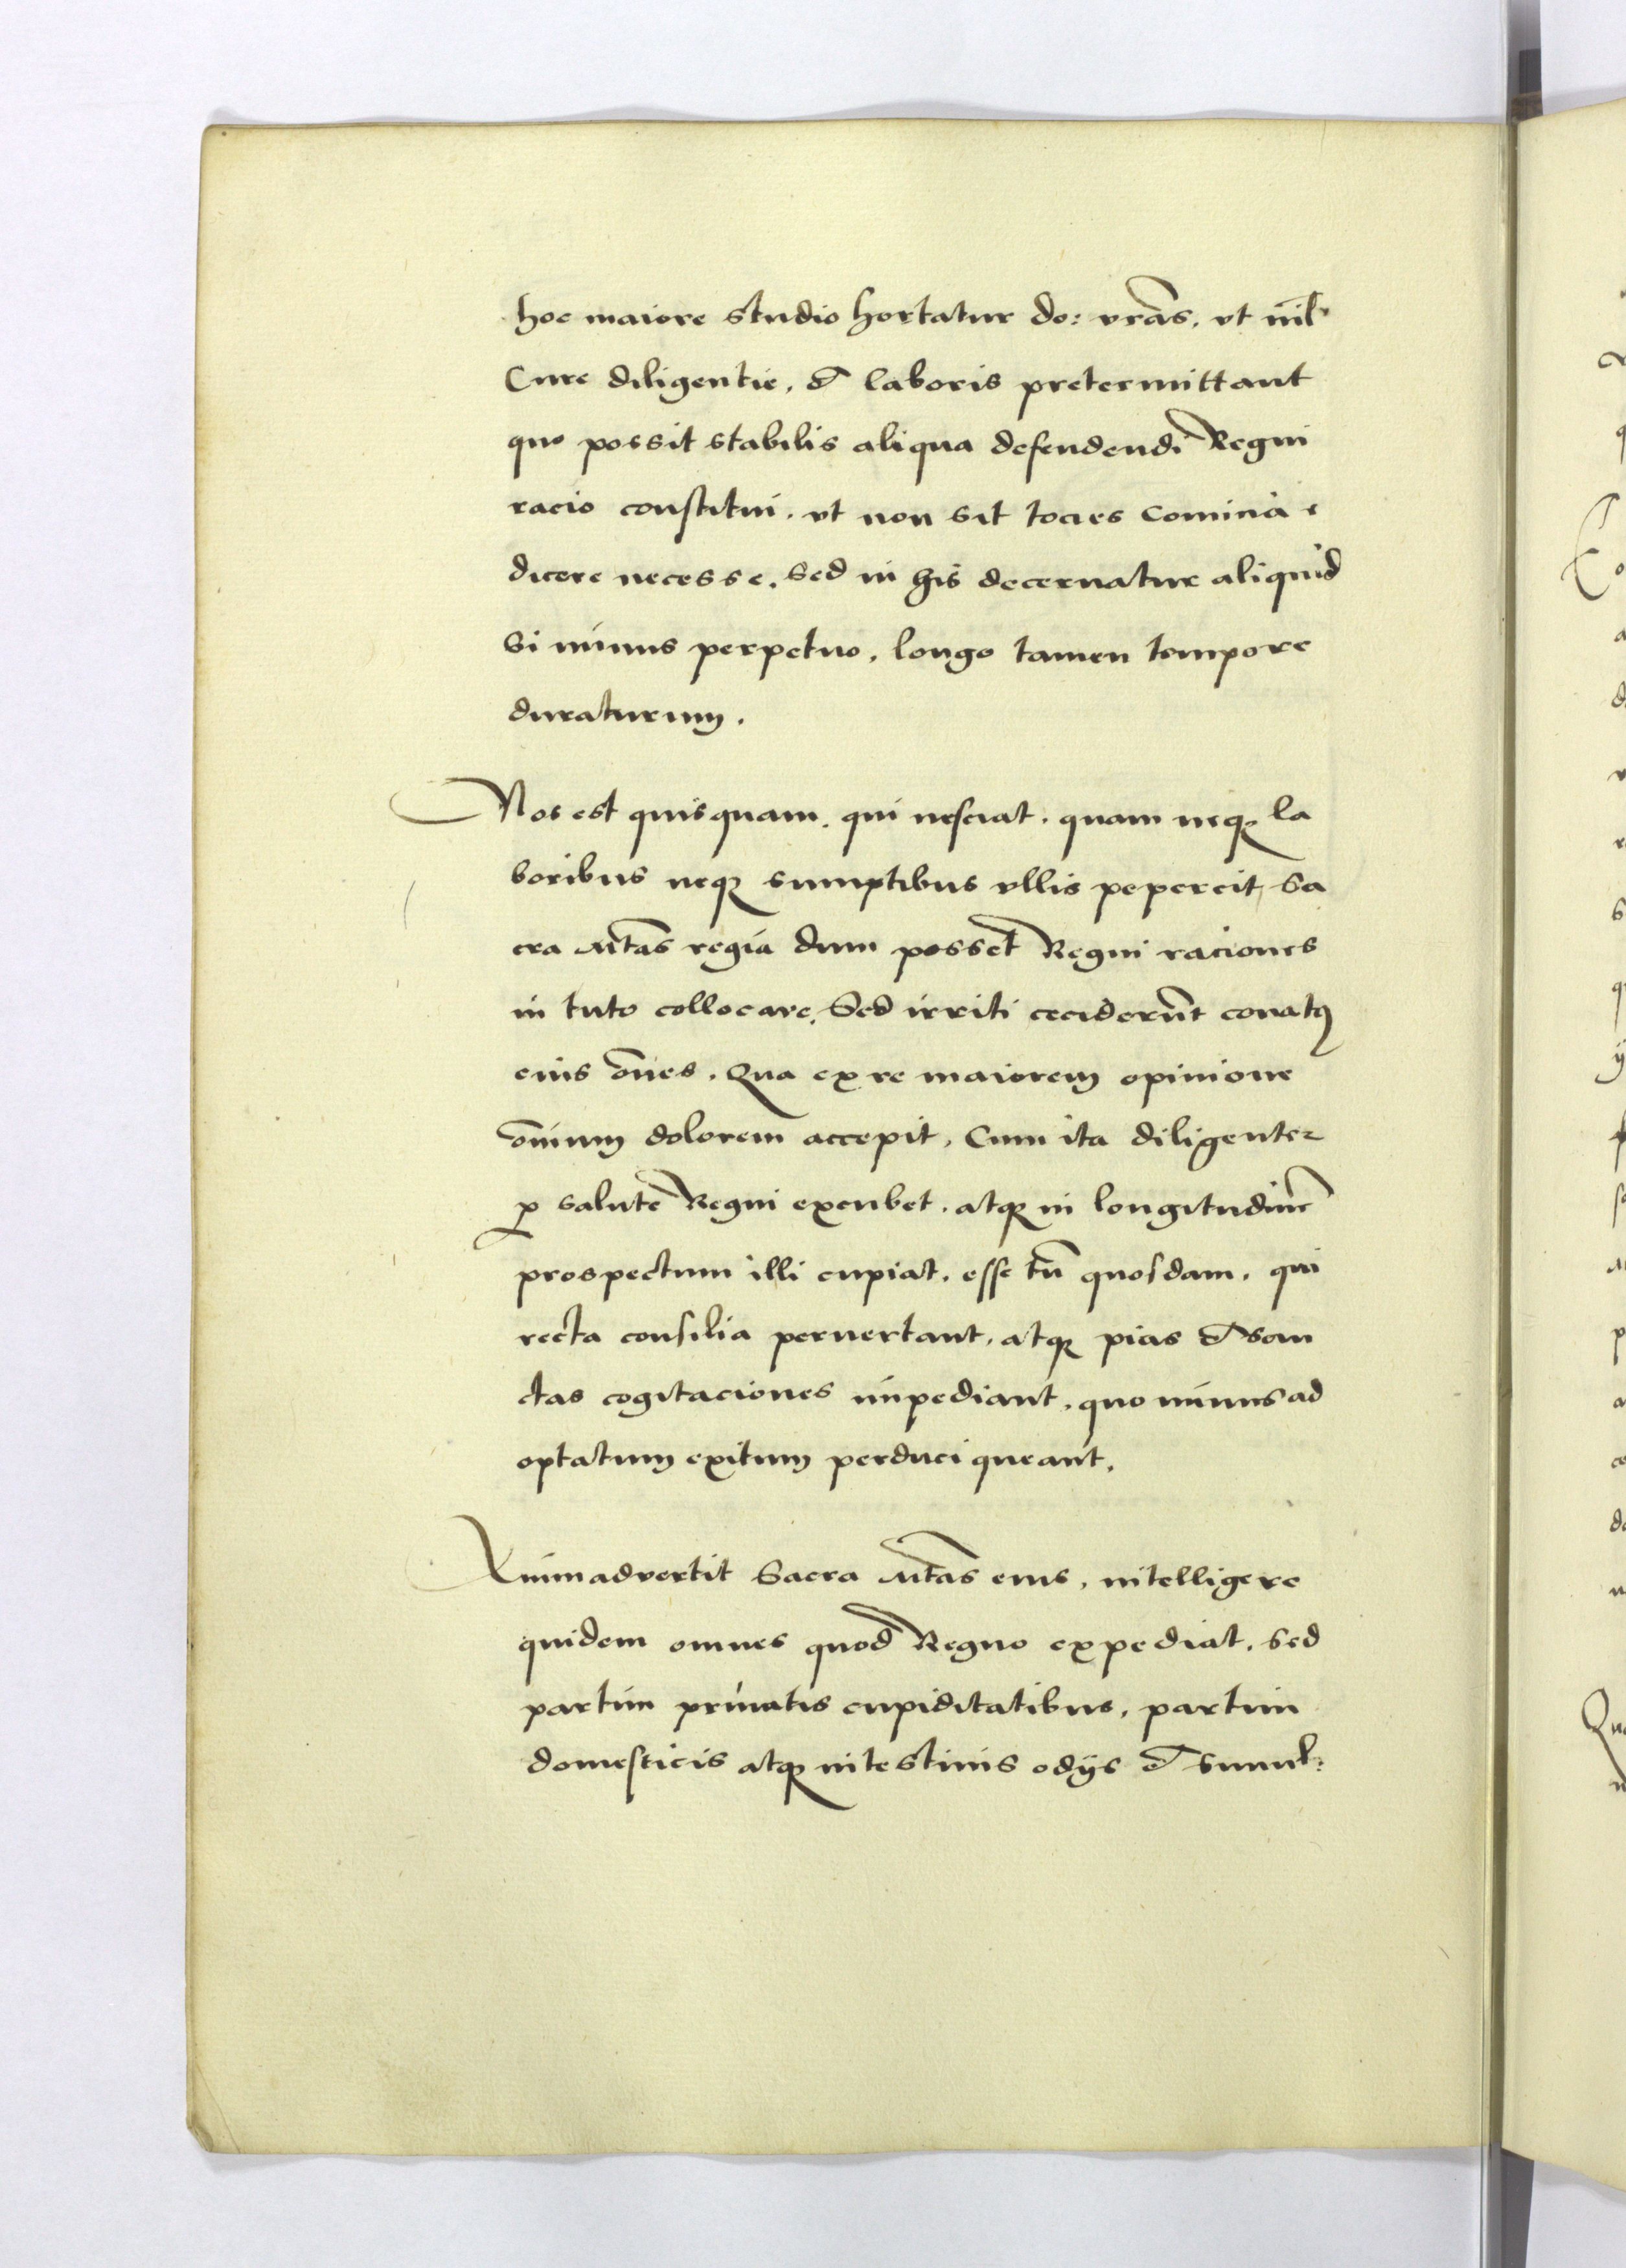 hoc maiore studio hortatur do: vrãs, vt nil
Cure diligentie, & laboris pretermittant
quo possit stabilis aliqua defendendi Regni
racio constitui, vt non sit tocies Comicia e
dicere necesse, sed in his decernatur aliquid
si minus perpetuo, longo tamen tempore
duraturum.
Nos est quisquam, qui nesciat, quam neqȝ la
boribus neqȝ sumptibus vllis pepercit, sa
cra Mtãs regia dum posset Regni raciones
in tuto collocare, Sed irriti ceciderũt conatꝰ
eius oẽs, Qua ex re maiorem opinione
oĩum dolorem accepit, Cum ita diligenter
ꝓ salutẽ Regni excubet, atqȝ in longitudinẽ
prospectum illi cupiat, esse tñ quosdam, qui
recta consilia peruertant, atqȝ pias & san
ctas cogitaciones impediant, quo minus ad
optatum exitum perduci queant.
Animadvertit Sacra Mtãs eius, intelligere
quidem omnes quod Regno expediat, sed
partim priuatis cupiditatibus, partim
domesticis atqȝ intestinis odijs & simul: